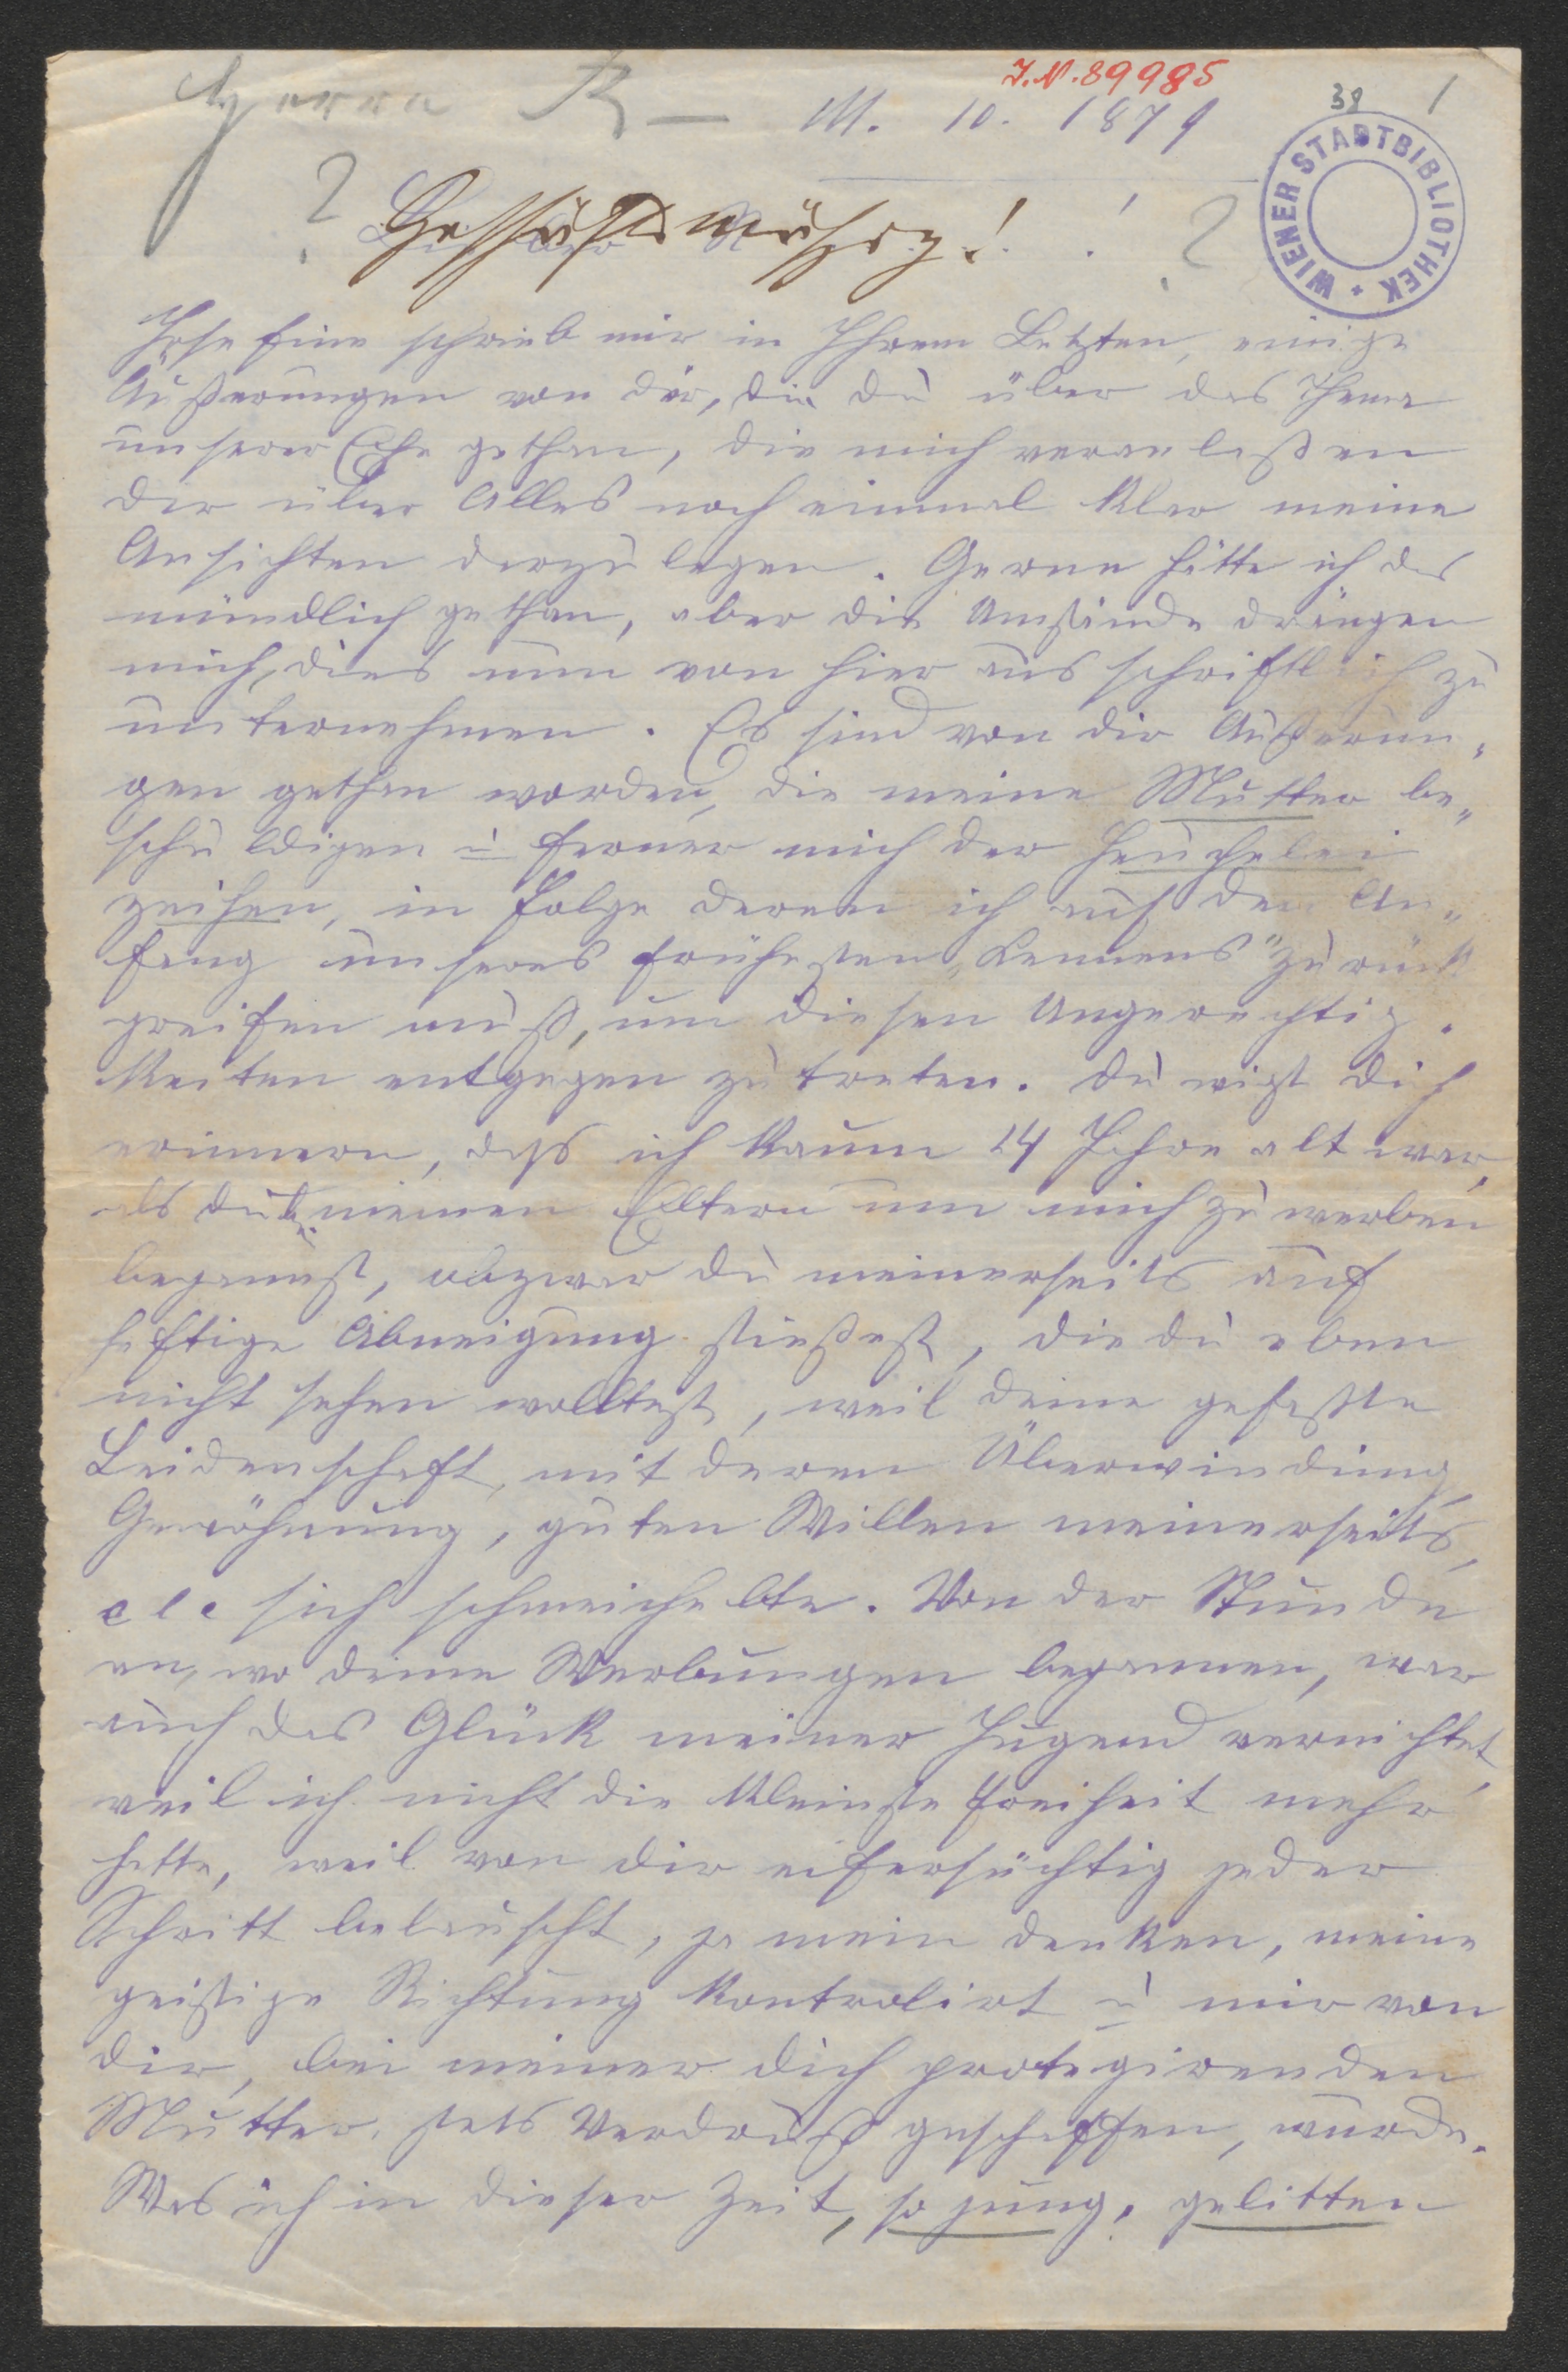 J.N. 89985
38 1
Herrn K –
M. 10. 1879
WIENER STADTBIBLIOTHEK
? ! ! ?
Josefine schrieb mir in Ihrem Letzten, einige
Äußerungen von dir, die du über das Thema
unserer Ehe gethan, die mich veranlaßen
dir über Alles noch einmal klar meine
Ansichten darzulegen. Gerne hätte ich das
mündlich gethan, aber die Umstände drängen
mich, dies nun von hier aus schriftlich zu
unternehmen. Es sind von dir Äußerun„
gen gethan worden, die meine Mutter be„
schuldigen u ferner mich der Heuchelei
zeihen, in Folge deren ich auf den An„
fang unseres frühesten „Kennens“ zurück
greifen muß, um diesen Ungerechtig„
keiten entgegen zu treten. Du wirst dich
erinnern, daß ich kaum 14 Jahre alt war,
als du b. meinen Eltern um mich zu werben
begannst, obzwar du meinerseits auf
heftige Abneigung stießest, die du eben
nicht sehen wolltest, weil deine gefaßte
Leidenschaft, mit deren Überwindung,
Gewöhnung, guten Willen meinerseits,
etc sich schmeichelte. Von der Stunde
an, wo deine Werbungen begannen, war
auch das Glück meiner Jugend vernichtet,
weil ich nicht die kleinste Freiheit mehr
hatte, weil von dir eifersüchtig jeder
Schritt belauscht, ja mein denken, meine
geistige Richtung kontrolirt u mir von
dir, bei meiner dich protegirenden
Mutter, stets Verdruß geschaffen, wurde.
Was ich in dieser Zeit, so jung, gelitten